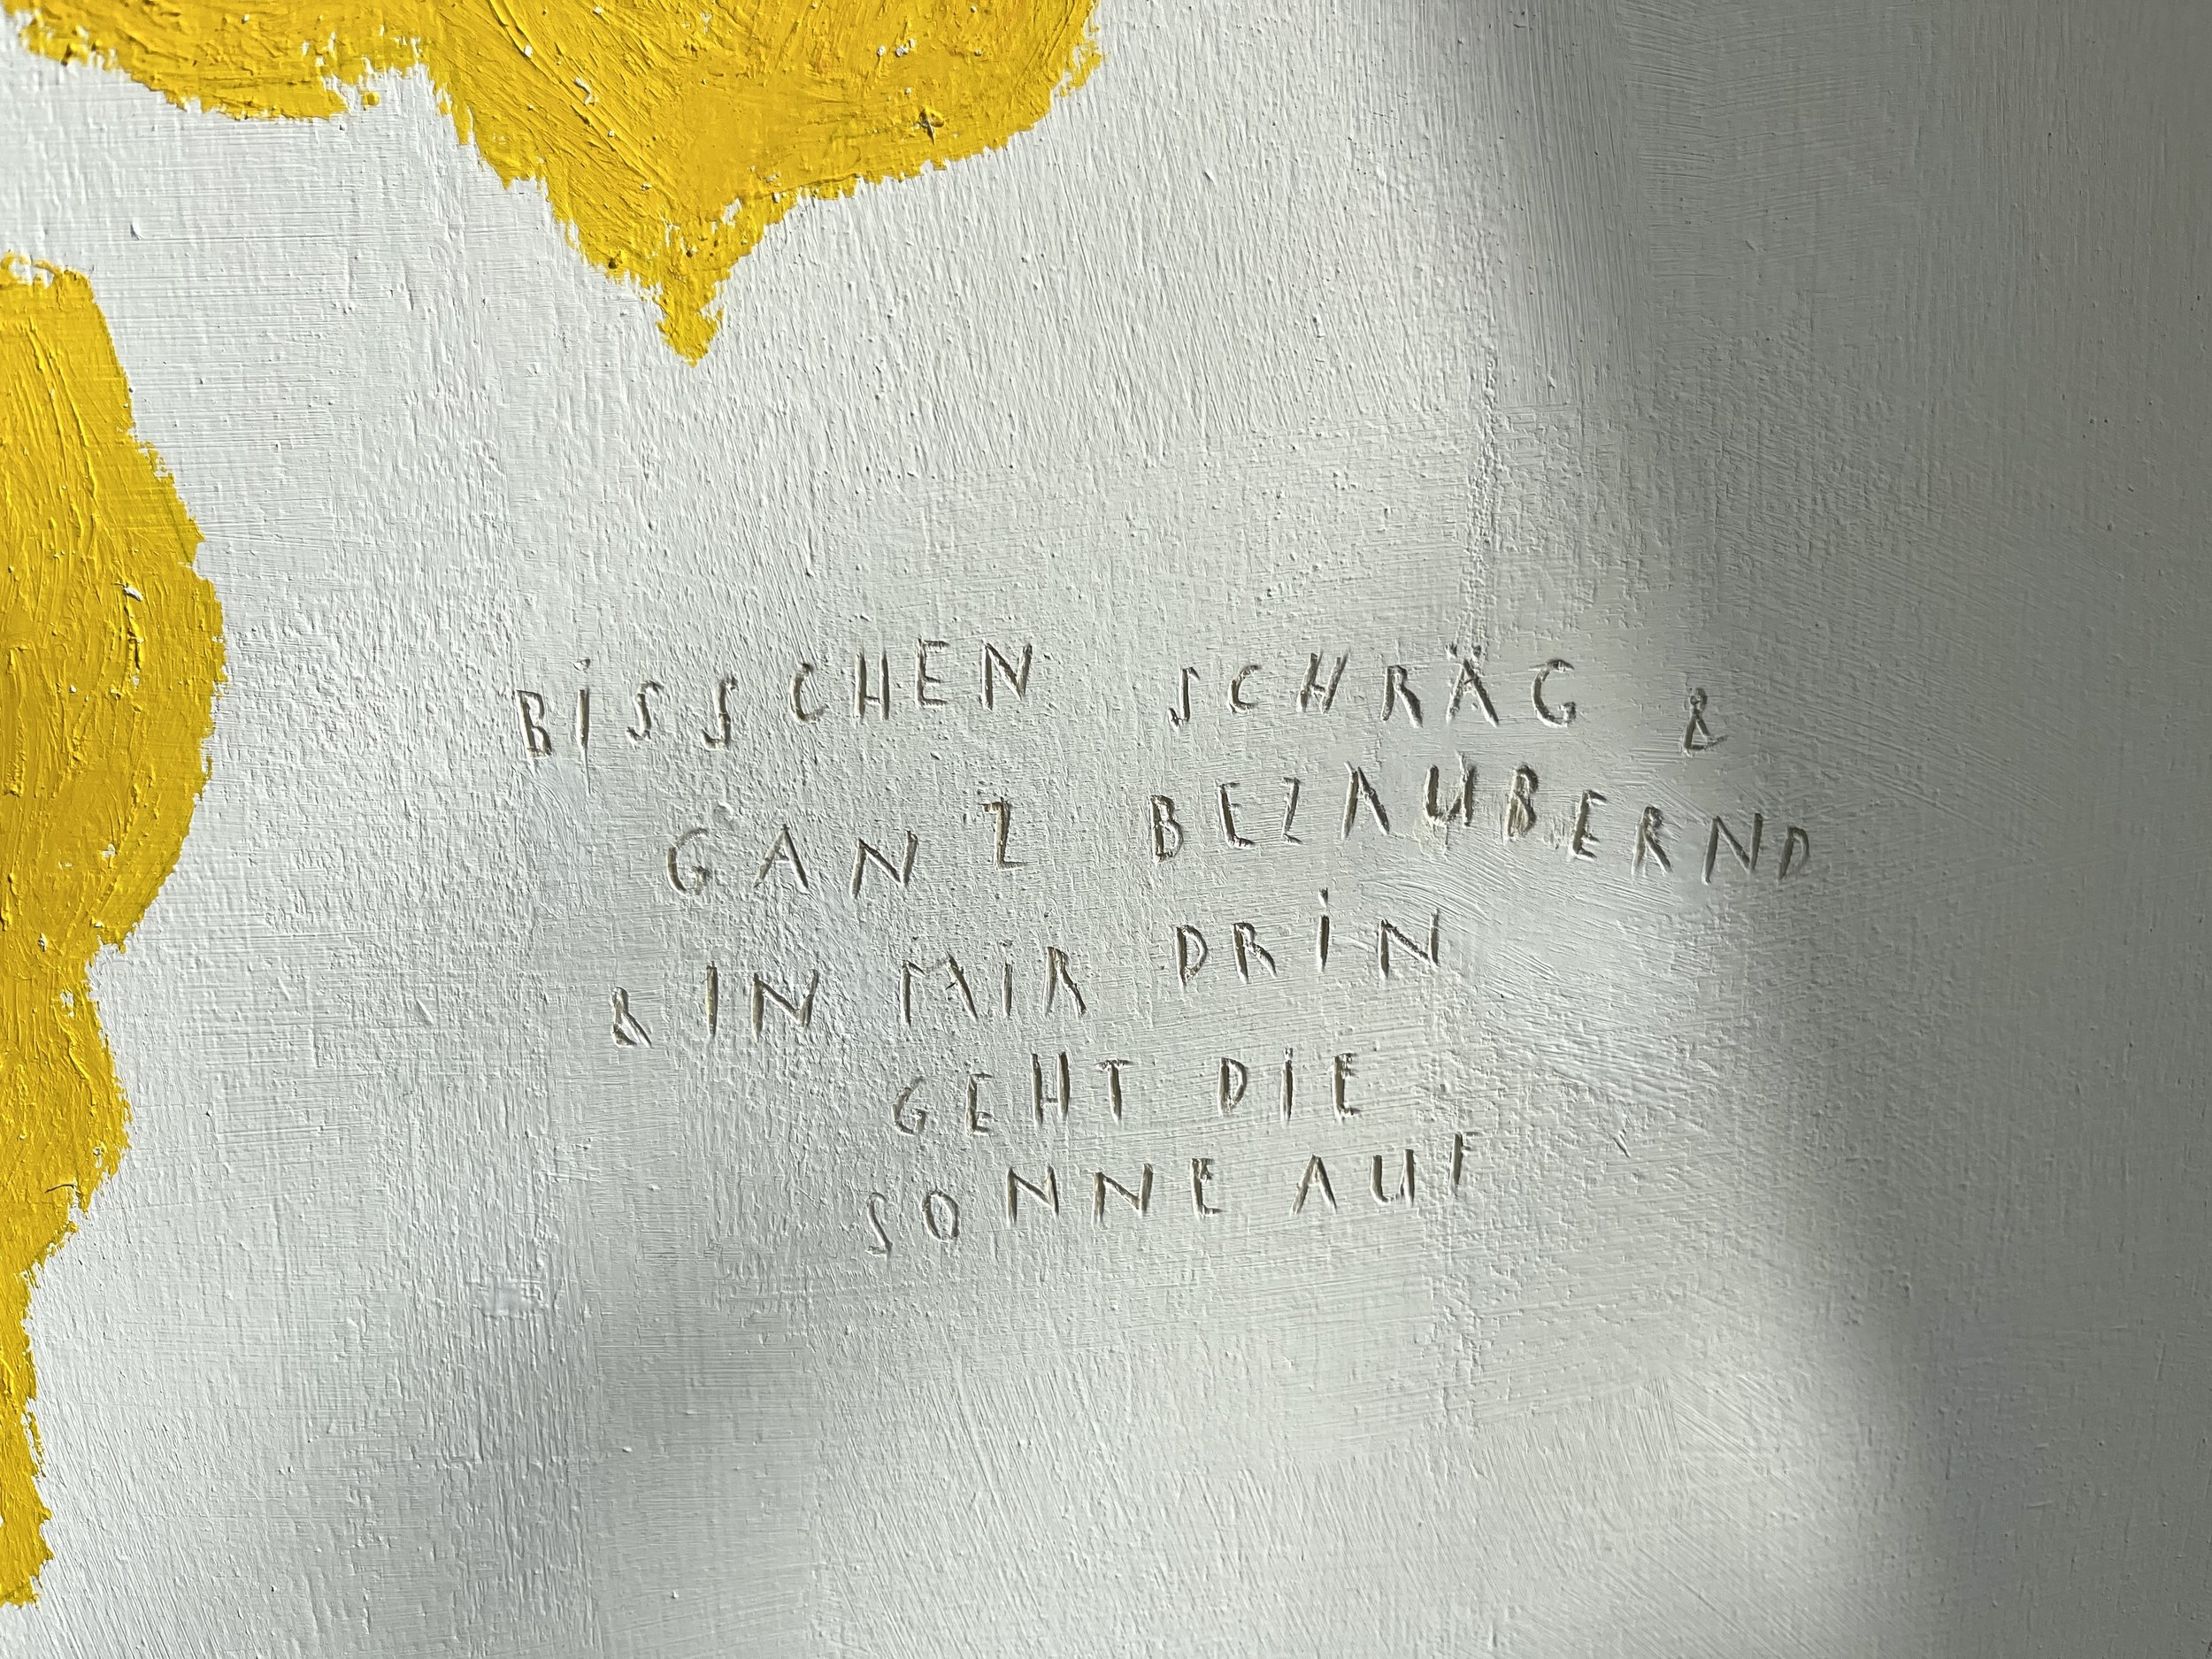 BiSSCHEN SCHRÄG &
GANZ BEZAUBERND
& IN MiR DRiN
GEHT DiE
SONNE AUF